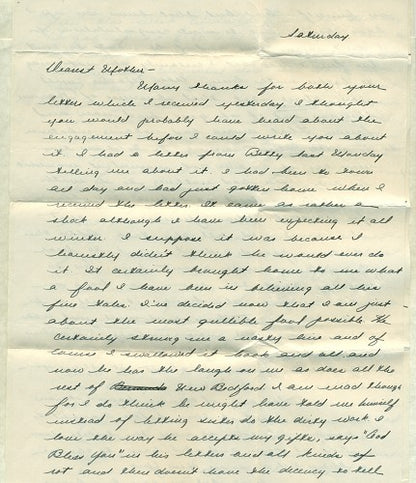 Saturday
Dearest Mother -
Many thanks for both your
letters which I received yesterday. I thought
you would probably have head about the
engagement before I could write you about
it. I had a letter from Betty last Monday
telling me about it. I had been to town
all day and had just gotten home when I
received the letter. It came as rather a
shock although I have been expecting it all
winter. I suppose it was because I
honestly didn't think he would ever do
it. It certainly brought home to me what
a fool I have been in believing all his
fine tales. I've decided now that I am just
about the most gullible fool possible. He
certainly strung me a nasty line and of
course I swallowed it hook and all and
now he has the laugh on me as does all the
rest of New Bedford. I am mad though
for I do think he might have told me himself
instead of letting sister do the dirty work. I
love the way he accepts my gifts, says "God
Bless You" in his letters and all kinds of
rot and then doesn't have the decency to tell